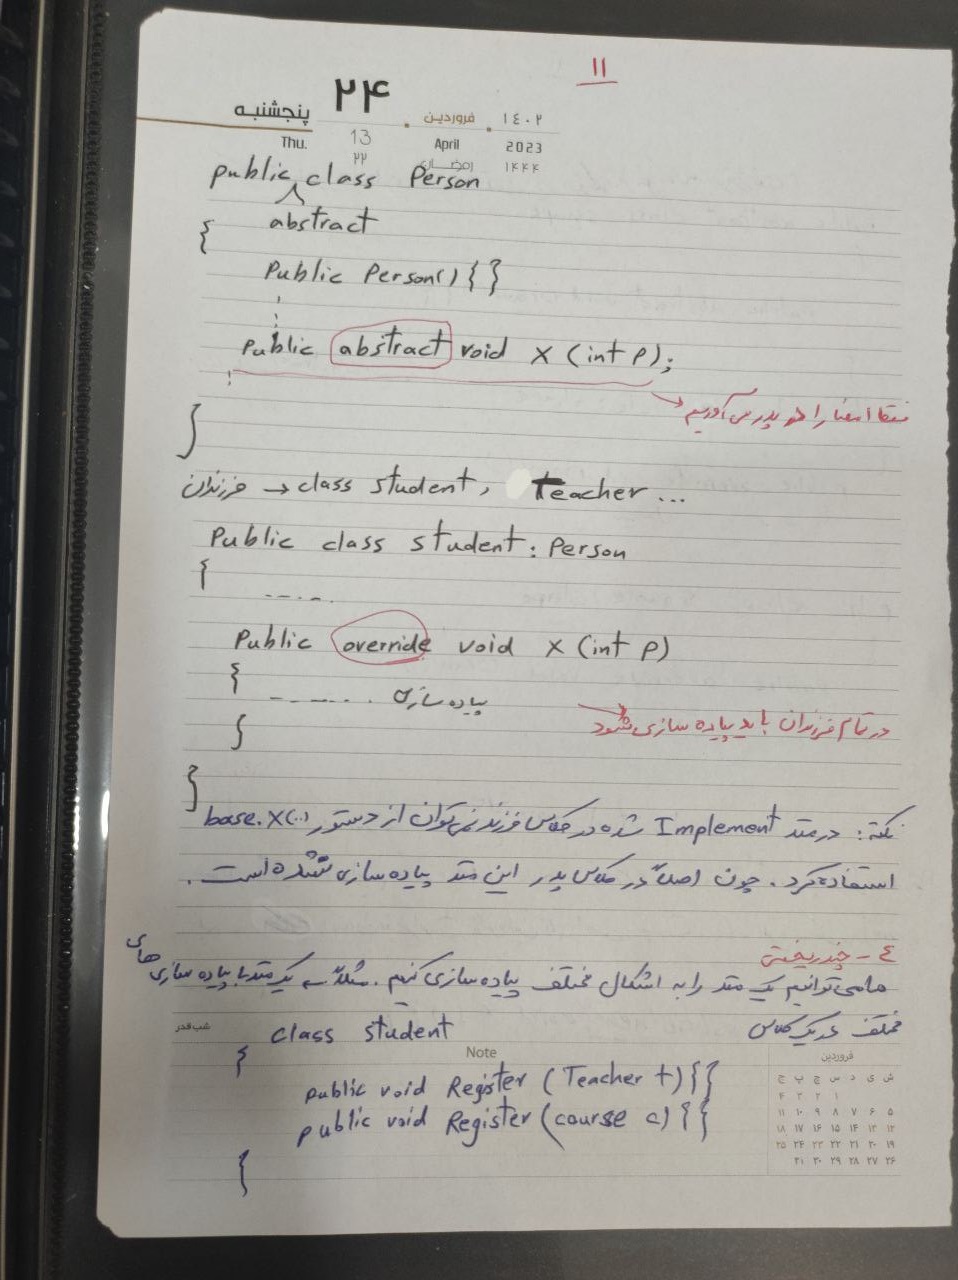 ۱۱
پنجشنبه ۲۴ فروردین ۱٤۰۲
Thu. 13 April 2023
۲۲ رمضان ۱۴۴۴
public class Person
abstract
{
Public Person() { }
Public abstract void X (int p);
فقط امضا را در پدر می‌آوریم
}
فرزندان → class student, Teacher ...
Public class student : Person
{
Public override void X (int p)
{
پیاده سازی
}
در تمام فرزندان باید پیاده سازی شود
}
نکته: در متد Implement شده در کلاس فرزند نمی‌توان از دستور base.X(..)
استفاده کرد. چون اصلاً در کلاس پدر این متد پیاده سازی نشده است.
٤- چندریختی
ما می توانیم یک متد را به اشکال مختلف پیاده سازی کنیم. مثلاً یک متد با پیاده سازی های
مختلف در یک کلاس
شب قدر
class student
{
Note
public void Register (Teacher t) { }
public void Register (course c) { }
{
فروردین
ش ی د س چ پ ج
۱ ۲ ۳ ۴
۵ ۶ ۷ ۸ ۹ ۱۰ ۱۱
۱۲ ۱۳ ۱۴ ۱۵ ۱۶ ۱۷ ۱۸
۱۹ ۲۰ ۲۱ ۲۲ ۲۳ ۲۴ ۲۵
۲۶ ۲۷ ۲۸ ۲۹ ۳۰ ۳۱